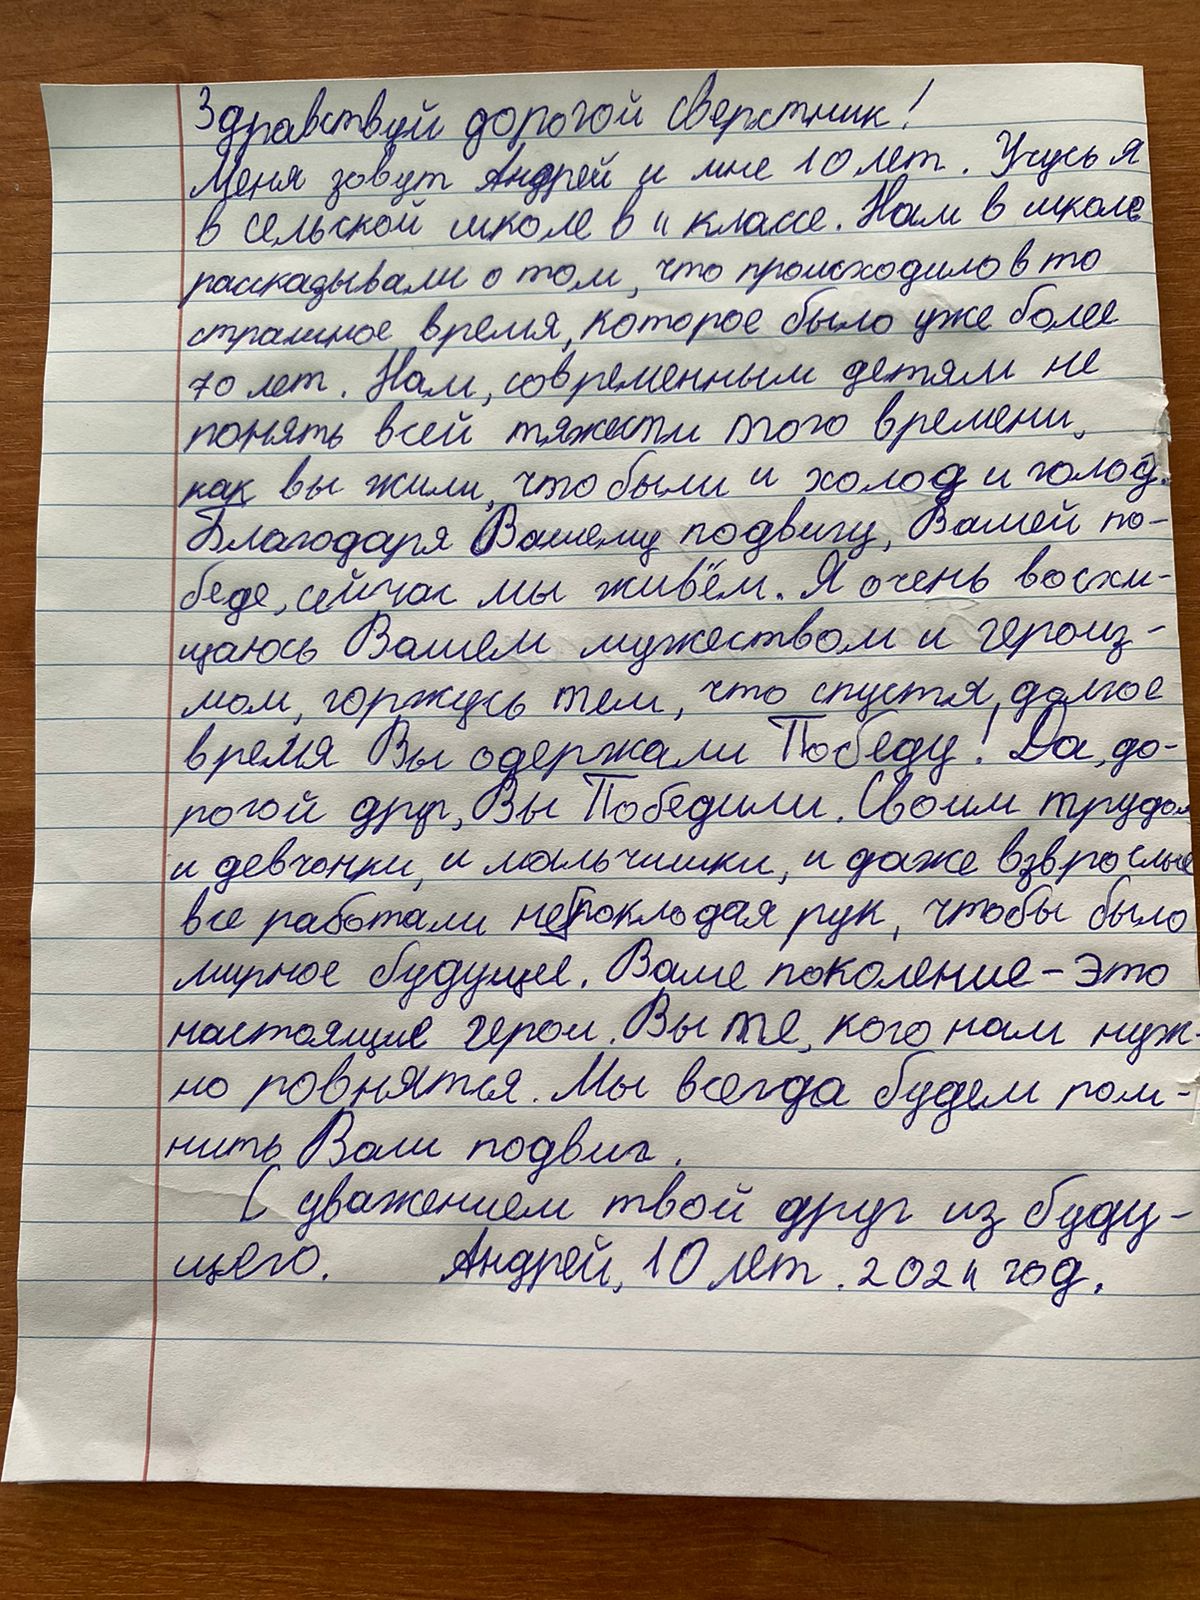 Здравствуй дорогой сверстник!
Меня зовут Андрей и мне 10 лет. Учусь я
в сельской школе в 4 классе. Нам в школе
рассказывали о том, что происходило в то
страшное время, которое было уже более
70 лет. Нам, современным детям не
понять всей тяжести того времени,
как вы жили, что были и холод и голод.
Благодаря Вашему подвигу, Вашей по-
беде, сейчас мы живём. Я очень восхи-
щаюсь Вашем мужеством и героиз-
мом, горжусь тем, что спустя, долгое
время Вы одержали Победу! Да, до-
рогой друг, Вы Победили. Своим трудом
и девчонки, и мальчишки, и даже взврослые
все работали не поклодая рук, чтобы было
мирное будущее. Ваше поколение - это
настоящие герои. Вы те, кого нам нуж-
но ровнятся. Мы всегда будем пом-
нить Ваш подвиг.
С уважением твой друг из буду-
щего. Андрей, 10 лет. 2024 год.